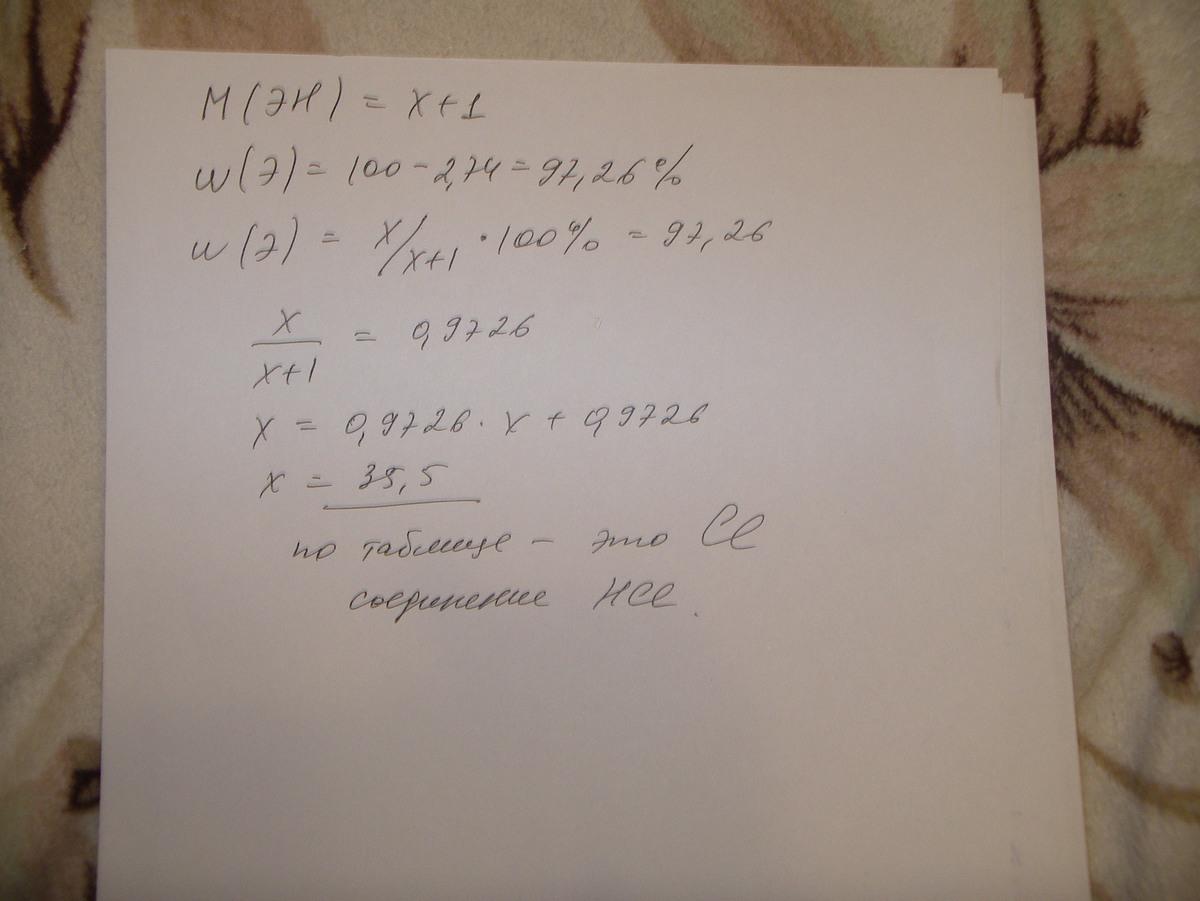 M(ЭН) = x+1
w(Э) = 100 - 2,74 = 97,26%
w(Э) = x/x+1 · 100% = 97,26
x/x+1 = 0,9726
x = 0,9726 · x + 0,9726
x = 35,5
по таблице - это Cl
соединение HCl.